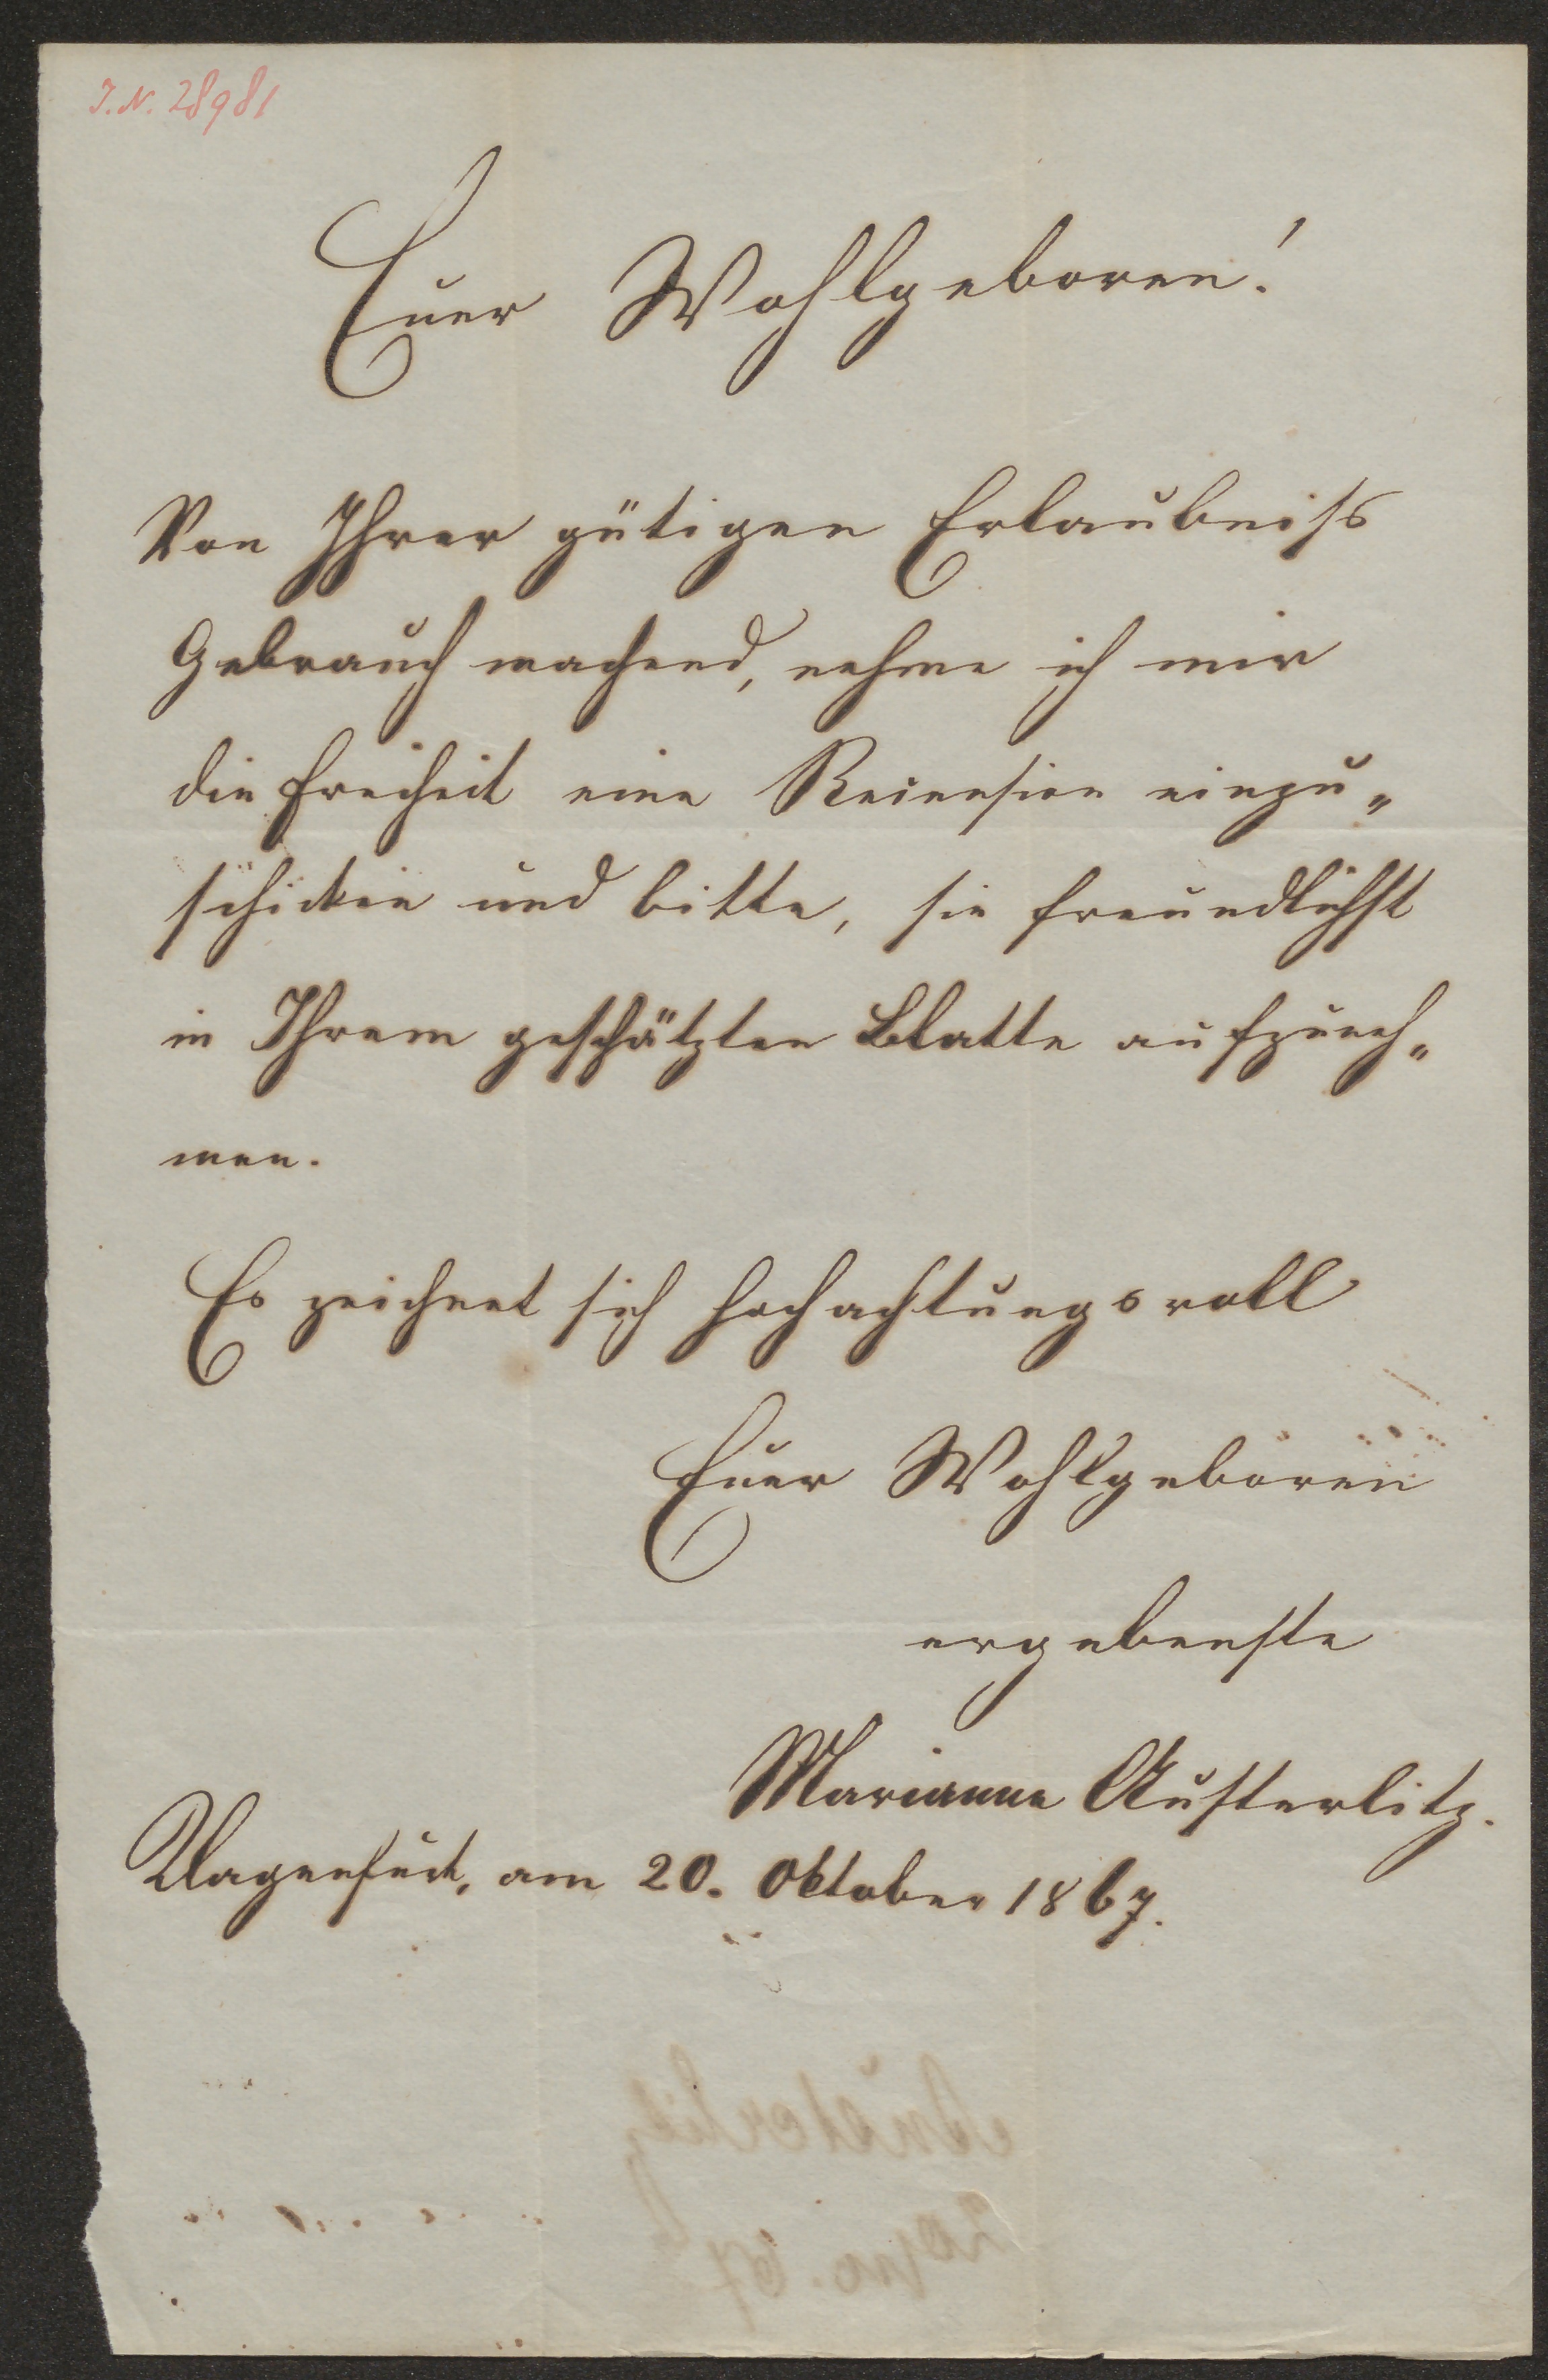 I.N. 28981
Euer Wohlgeboren!
Von Ihrer gütigen Erlaubniss
Gebrauch machend, nehme ich mir
die Freiheit eine Recension einzu„
schicken und bitte, sie freundlichst
in Ihrem geschätzten Blatte aufzuneh„
men.
Es zeichnet sich hochachtungsvoll
Euer Wohlgeboren
ergebenste
Marianne Austerlitz.
Klagenfurt, am 20. Oktober 1867.
Austerlitz
20/10. 67